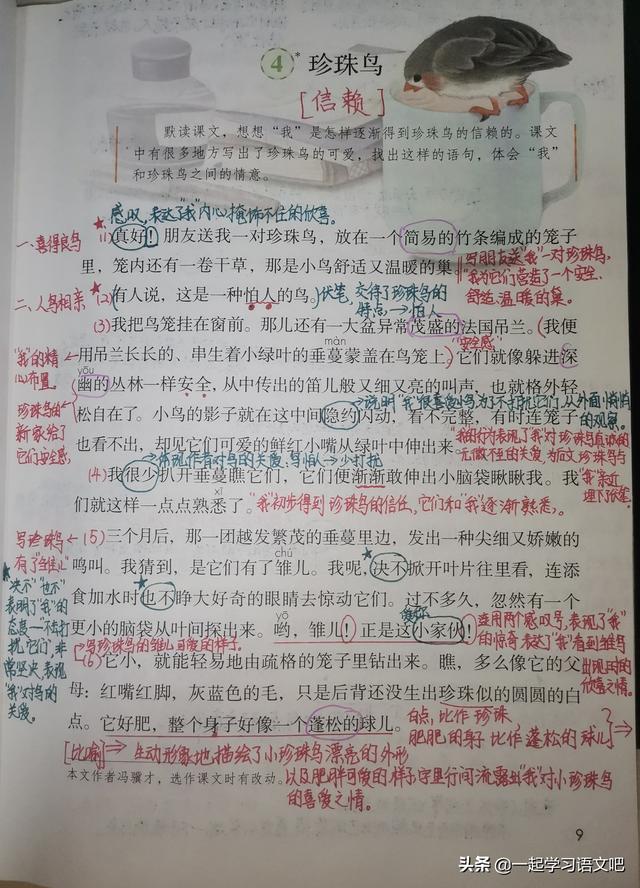 4* 珍珠鸟
[信赖]
默读课文,想想“我”是怎样逐渐得到珍珠鸟的信赖的。课文
中有很多地方写出了珍珠鸟的可爱,找出这样的语句,体会“我”
和珍珠鸟之间的情意。
感叹,表达了“我”内心掩饰不住的欣喜。
一、喜得良鸟
(1)真好!朋友送我一对珍珠鸟,放在一个简易的竹条编成的笼子
里,笼内还有一卷干草,那是小鸟舒适又温暖的巢
写朋友送“我”一对珍珠鸟,
“我”为它们营造了一个安全、
舒适、温暖的巢。
二、人鸟相亲
(2)有人说,这是一种怕人的鸟。
伏笔,交待了珍珠鸟的
特点→怕人
(3)我把鸟笼挂在窗前。那儿还有一大盆异常茂盛的法国吊兰。(我便
“安全感”
màn
用吊兰长长的、串生着小绿叶的垂蔓蒙盖在鸟笼上)它们就像躲进深
yōu
幽的丛林一样安全,从中传出的笛儿般又细又亮的叫声,也就格外轻
“我”的精
心布置,
珍珠鸟的
新家给了
它们安全感。
说明“我”很喜爱小鸟,为了不打扰它们,从外面悄悄
的观察。
松自在了。小鸟的影子就在这中间隐约闪动,看不完整,有时连笼子
也看不出,却见它们可爱的鲜红小嘴从绿叶中伸出来。
“我”的行为表现了“我”对珍珠鸟真诚的
无微不至的关爱,为后文珍珠鸟与
“我”亲近
埋下伏笔。
体现作者对鸟的关爱:鸟怕人→少打扰
(4)我很少扒开垂蔓瞧它们,它们便渐渐敢伸出小脑袋瞅瞅我。我
xī
们就这样一点点熟悉了。
“我”初步得到珍珠鸟的信任,它们和“我”逐渐熟悉。
写珍珠鸟
有了“雏儿”
(5)三个月后,那一团越发繁茂的垂蔓里边,发出一种尖细又娇嫩的
chú
鸣叫。我猜到,是它们有了雏儿。我呢,决不掀开叶片往里看,连添
食加水时也不睁大好奇的眼睛去惊动它们。过不多久,忽然有一个
yō
更小的脑袋从叶间探出来。哟,雏儿!正是这小家伙!
“决不”“也不”
表明了“我”的
态度—不去打
扰它们,非
常坚决,表现
“我”对鸟的
关爱。
连用两个感叹号,表现了“我”
的惊奇,表达了“我”看到雏鸟
出现时的
欣喜之情。
写珍珠鸟的雏儿可爱的样子。
(6)它小,就能轻易地由疏格的笼子里钻出来。瞧,多么像它的父
母:红嘴红脚,灰蓝色的毛,只是后背还没生出珍珠似的圆圆的白
点。它好肥,整个身子好像一个蓬松的球儿。
白点,比作珍珠,
肥肥的身子比作“蓬松的球儿”
[比喻]⇒生动形象地描绘了小珍珠鸟漂亮的外形
以及肥胖可爱的样子,字里行间流露出“我”对小珍珠鸟
的喜爱之情。
本文作者冯骥才,选作课文时有改动。
9
头条 @一起学习语文吧